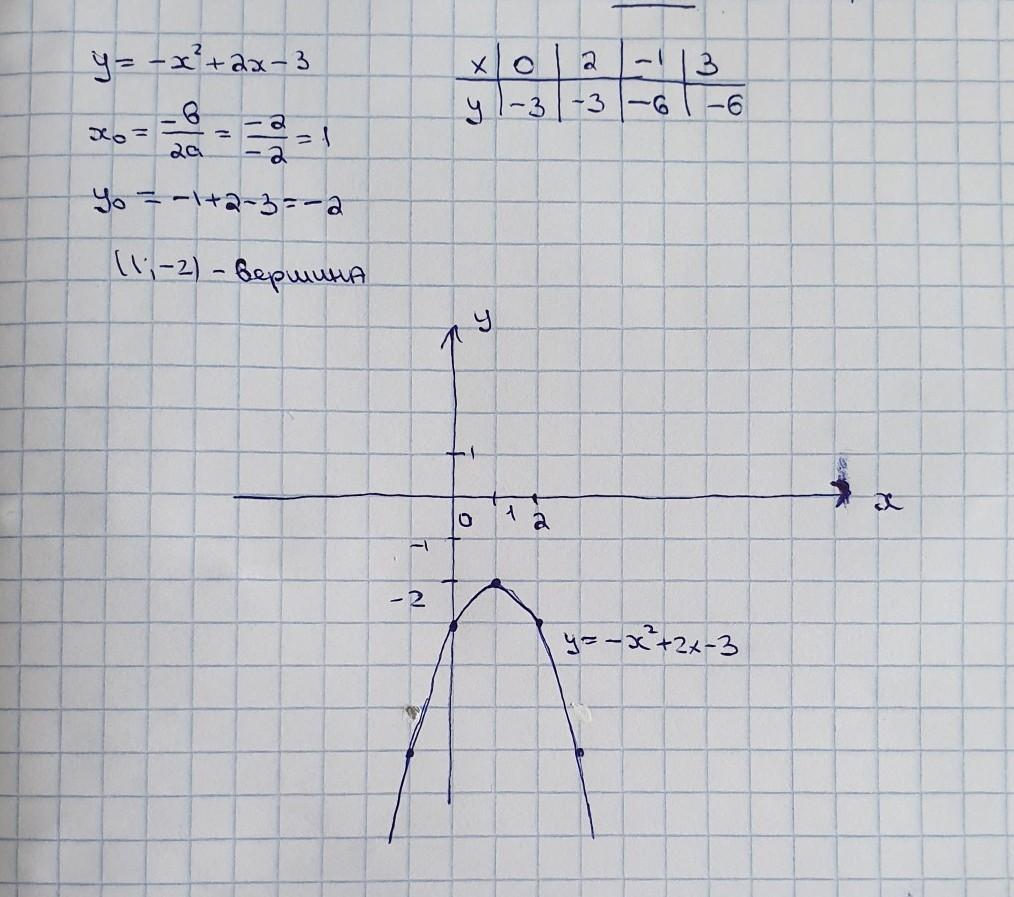 y = -x² + 2x - 3
x₀ = -в/2a = -2/-2 = 1
y₀ = -1+2-3 = -2
(1; -2) - вершина
x | 0 | 2 | -1 | 3
y | -3 | -3 | -6 | -6
y
1
0 1 2 x
-1
-2
y = -x² + 2x - 3